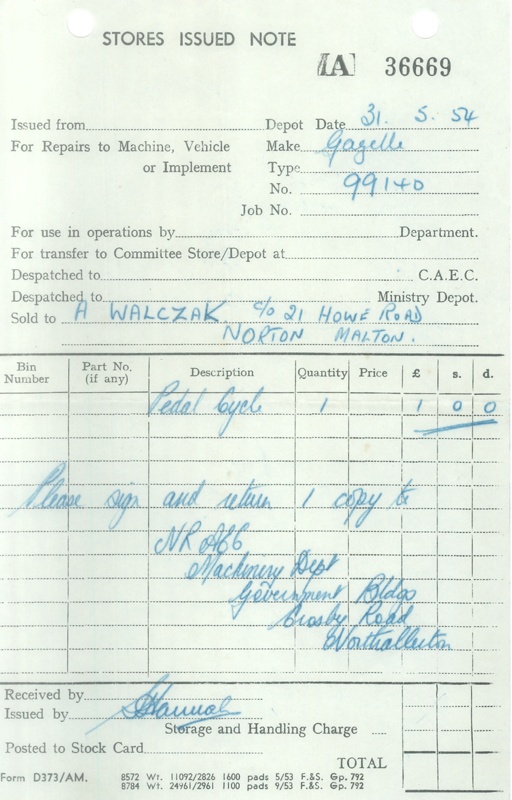 STORES ISSUED NOTE
[A] 36669
Issued from Depot Date 31. 5. 54
For Repairs to Machine, Vehicle Make Gazelle
or Implement Type
No. 99140
Job No.
For use in operations by Department.
For transfer to Committee Store/Depot at
Despatched to C.A.E.C.
Despatched to Ministry Depot.
Sold to A WALCZAK c/o 21 HOWE ROAD
NORTON MALTON.
Bin Number Part No. (if any) Description Quantity Price £ s. d.
Pedal Cycle 1 1 0 0
Please sign and return 1 copy to
Machinery Dept
Government Bldgs
Crosby Road
Northallerton
Received by
Issued by
Storage and Handling Charge
Posted to Stock Card
TOTAL
Form D373/AM. 8572 Wt. 11092/2826 1600 pads 5/53 F.&S. Gp. 792
8784 Wt. 24961/2961 1100 pads 9/53 F.&S. Gp. 792